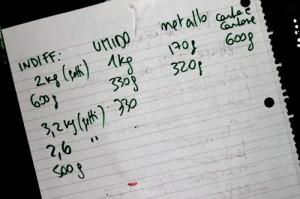 INDIFF: UMIDO metallo carta e cartone
2 kg (gatti) 1 kg 170g 600g
600g 330g 320g
3,2 kg (gatti) 330
2,6 "
500g